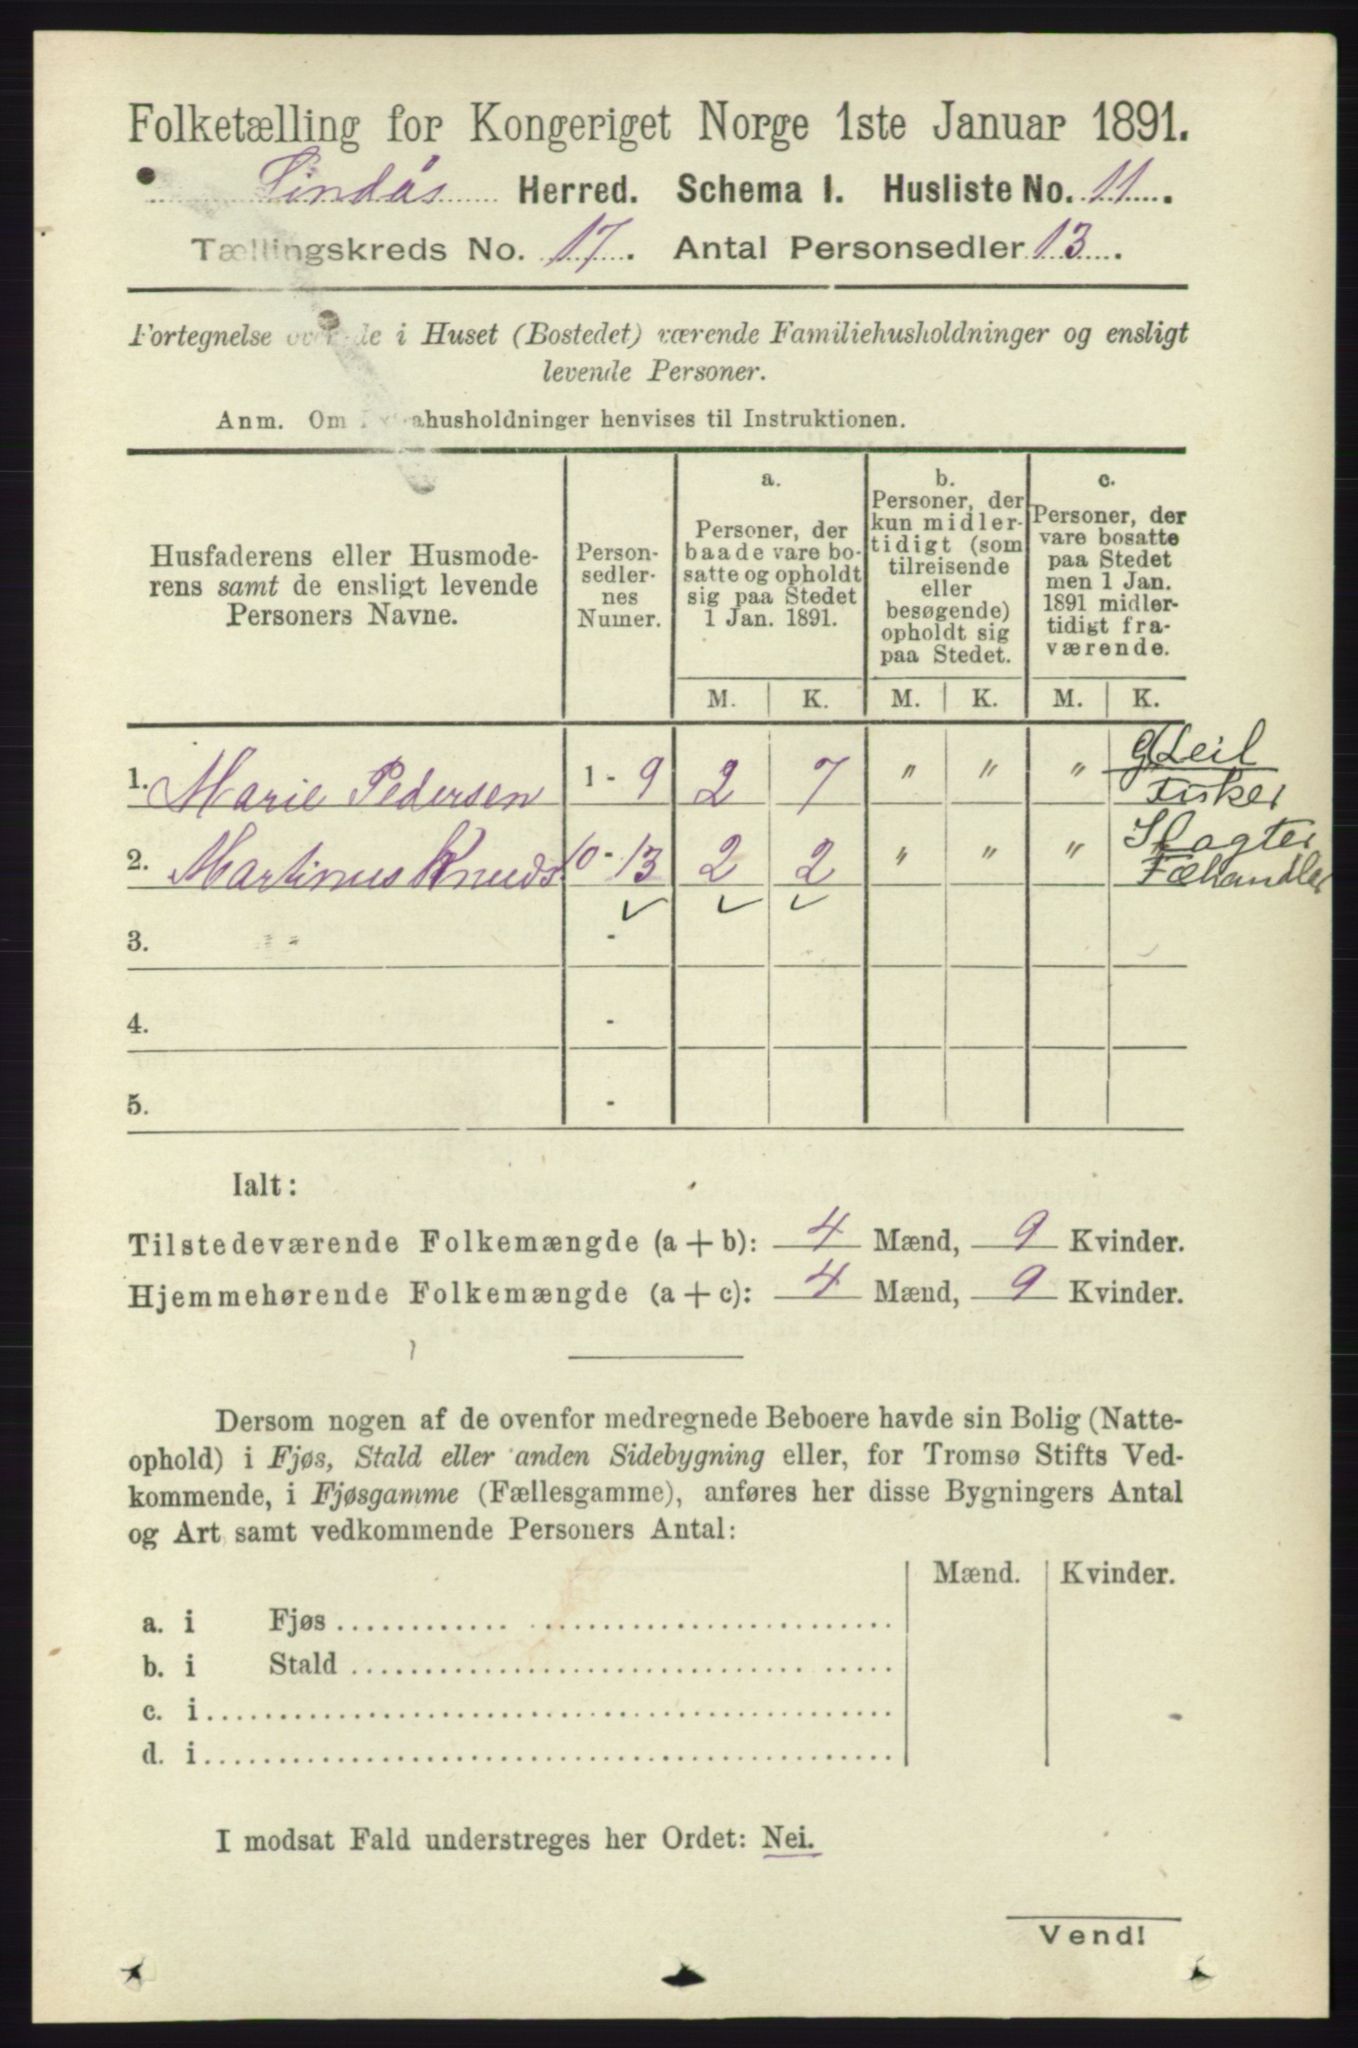 Folketælling for Kongeriget Norge 1ste Januar 1891.
Lindås Herred. Schema I. Husliste No. 11.
Tællingskreds No. 17. Antal Personsedler 13.
Fortegnelse over de i Huset (Bostedet) værende Familiehusholdninger og ensligt
levende Personer.
Anm. Om Extrahusholdninger henvises til Instruktionen.
Husfaderens eller Husmode-
rens samt de ensligt levende
Personers Navne.
Person-
sedler-
nes
Numer.
a.
Personer, der
baade vare bo-
satte og opholdt
sig paa Stedet
1 Jan. 1891.
b.
Personer, der
kun midler-
tidigt (som
tilreisende
eller
besøgende)
opholdt sig
paa Stedet.
c.
Personer, der
vare bosatte
paa Stedet
men 1 Jan.
1891 midler-
tidigt fra-
værende.
M. K. M. K. M. K.
1. Marie Pedersen 1 - 9 2 7 " " " G Leil
Fisker
2. Martinus Knuds. 10 - 13 2 2 " " " Slagter
Fæhandler
3. -
4. -
5. -
Ialt:
Tilstedeværende Folkemængde (a + b): 4 Mænd, 9 Kvinder.
Hjemmehørende Folkemængde (a + c): 4 Mænd, 9 Kvinder.
Dersom nogen af de ovenfor medregnede Beboere havde sin Bolig (Natte-
ophold) i Fjøs, Stald eller anden Sidebygning eller, for Tromsø Stifts Ved-
kommende, i Fjøsgamme (Fællesgamme), anføres her disse Bygningers Antal
og Art samt vedkommende Personers Antal:
Mænd. Kvinder.
a. i Fjøs
b. i Stald
c. i
d. i
I modsat Fald understreges her Ordet: Nei.
Vend!